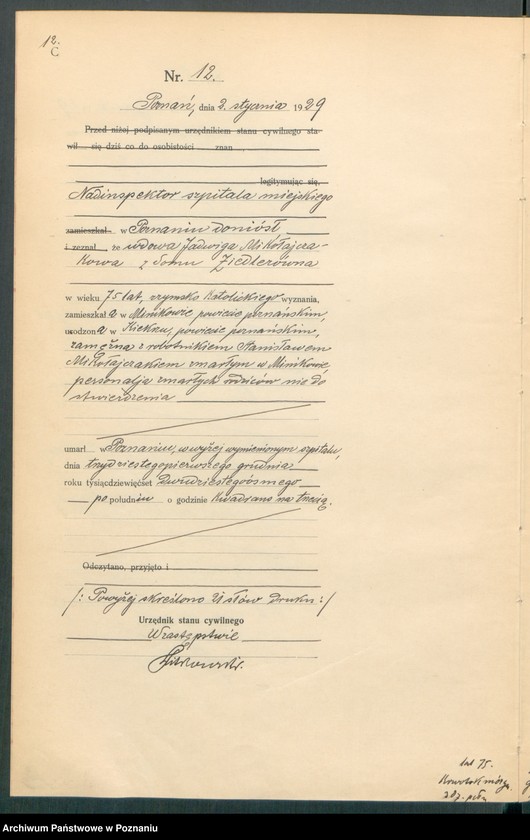 12.
C
Nr. 12.
Poznań, dnia 2. stycznia 1929
Przed niżej podpisanym urzędnikiem stanu cywilnego sta-
wił się dziś co do osobistości znan
legitymując się,
Nadinspektor szpitala miejskiego
zamieszkał w Poznaniu doniósł
i zeznał, że wdowa Jadwiga Mikołajcza-
kowa z domu Ziedlerówna
w wieku 75 lat, rzymsko katolickiego wyznania,
zamieszkała w Minikowie, powiecie poznańskim,
urodzona w Kiekrzu, powiecie poznańskim,
zamężna z robotnikiem Stanisławem
Mikołajczakiem zmarłym w Minikowie
personalja zmarłych rodziców nie do
stwierdzenia
umarł w Poznaniu, w wyżej wymienionym szpitalu,
dnia trzydziestegopierwszego grudnia
roku tysiącdziewięćset dwudziestegoósmego
po południu o godzinie kwadrans na trzecią.
Odczytano, przyjęto i
/: Powyżej skreślono 21 słów druku :/
Urzędnik stanu cywilnego
W zastępstwie
lat 75.
Archiwum Państwowe w Poznaniu